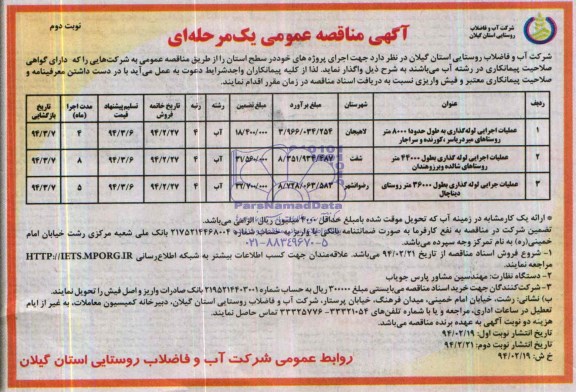 نوبت دوم
شرکت آب و فاضلاب روستایی استان گیلان
آگهی مناقصه عمومی یک‌مرحله‌ای
شرکت آب و فاضلاب روستایی استان گیلان در نظر دارد جهت اجرای پروژه های خوددر سطح استان را از طریق مناقصه عمومی به شرکت‌هایی را که دارای گواهی
صلاحیت پیمانکاری در رشته آب می‌باشند به شرح ذیل واگذار نماید. لذا از کلیه پیمانکاران واجدشرایط دعوت به عمل می‌آید با در دست داشتن معرفینامه و
صلاحیت پیمانکاری معتبر و فیش واریزی نسبت به دریافت اسناد مناقصه در زمان مقرر اقدام نمایند.
ردیف عنوان شهرستان مبلغ برآورد مبلغ تضمین رشته رتبه تاریخ خاتمه فروش تسلیم پیشنهاد قیمت مدت اجرا (ماه) تاریخ بازگشایی
۱ عملیات اجرایی لوله‌گذاری به طول حدودا ۸۰۰۰ متر روستاهای میردریاسر، کورنده و سراجار لاهیجان ۳/۹۶۶/۰۳۴/۲۵۴ آب ۴ ۹۴/۲/۲۷ ۹۴/۳/۶ ۴ ۹۴/۳/۷
۲ عملیات اجرایی لوله گذاری بطول ۴۴۰۰۰ متر روستاهای شالده ویرزوهندان شفت ۸/۳۵۱/۹۳۴/۴۸۷ آب ۴ ۹۴/۲/۲۷ ۹۴/۳/۶ ۸ ۹۴/۳/۷
۳ عملیات جرایی لوله گذاری بطول ۳۶۰۰۰ متر روستای دیناچال رضوانشهر ۸/۷۲۸/۰۶۳/۵۸۳ آب ۴ ۹۴/۲/۲۷ ۹۴/۳/۶ ۵ ۹۴/۳/۷
ParsNamadData
۰۲۱-۸۸۳۴۹۶۷۰-۵
* ارائه یک کارمشابه در زمینه آب که تحویل موقت شده بامبلغ حداقل ۳۰۰۰ میلیون ریال الزامی می‌باشد.
تضمین شرکت در مناقصه به نفع کارفرما به صورت ضمانتنامه بانکی یا واریز به حساب شماره ۲۱۷۵۲۱۴۴۶۸۰۰۴ بانک ملی شعبه مرکزی رشت خیابان امام
خمینی(ره) به نام تمرکز وجه سپرده می‌باشد.
۱- شروع فروش اسناد مناقصه از تاریخ ۹۴/۰۲/۲۱ می‌باشد. علاقه‌مندان جهت کسب اطلاعات بیشتر به شبکه اطلاع‌رسانی HTTP://IETS.MPORG.IR
مراجعه نمایند.
۲- دستگاه نظارت: مهندسین مشاور پارس جویاب
۳- شرکت‌کنندگان جهت خرید اسناد مناقصه می‌بایستی مبلغ ۳۰۰۰۰۰ ریال به حساب شماره ۲۱۹۵۲۱۴۴۰۳۰۰۱ بانک صادرات واریز و اصل فیش را تحویل نمایند.
ب) نشانی: رشت، خیابان امام خمینی، میدان فرهنگ، خیابان پرستار، شرکت آب و فاضلاب روستایی استان گیلان، دبیرخانه کمیسیون معاملات، به غیر از ایام
تعطیل در ساعات اداری، مراجعه و یا با شماره تلفن‌های ۳۳۳۲۱۰۵۴- ۳۳۳۲۵۷۷۶ تماس حاصل نمایند.
هزینه دو نوبت آگهی به عهده برنده مناقصه می‌باشد.
تاریخ انتشار نوبت اول: ۹۴/۰۲/۱۹
تاریخ انتشار نوبت دوم: ۹۴/۲/۲۱
خ ش: ۹۴/۰۲/۱۹
روابط عمومی شرکت آب و فاضلاب روستایی استان گیلان